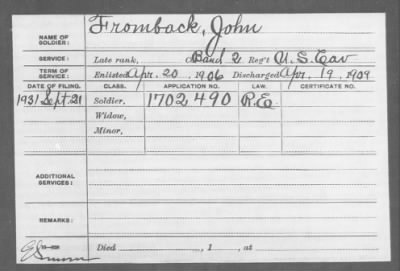 NAME OF SOLDIER: Fromback, John
SERVICE: Late rank, Co Band 2 Reg't U.S. Cav
TERM OF SERVICE: Enlisted Apr. 20 1906 Discharged Apr. 19 1909
DATE OF FILING. CLASS. APPLICATION NO. LAW. CERTIFICATE NO.
1931 Sept. 21 Soldier, 1702490 R.E.
Widow,
Minor,
ADDITIONAL SERVICES:
REMARKS:
Died , 1 , at